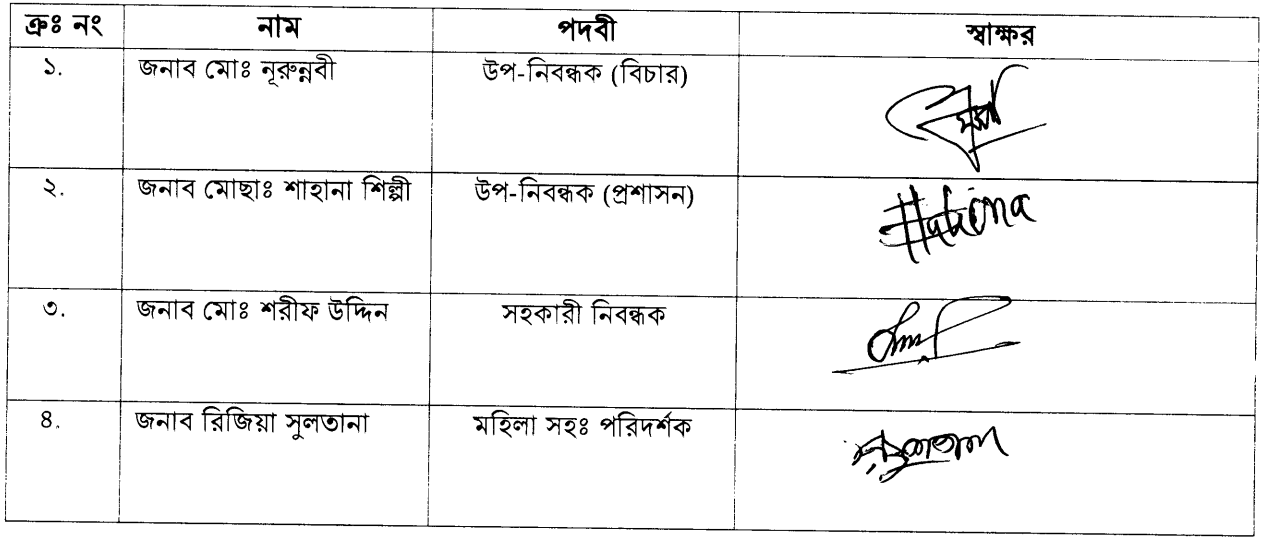 ক্রঃ নং নাম পদবী স্বাক্ষর
১. জনাব মোঃ নূরুন্নবী উপ-নিবন্ধক (বিচার)
২. জনাব মোছাঃ শাহানা শিল্পী উপ-নিবন্ধক (প্রশাসন)
৩. জনাব মোঃ শরীফ উদ্দিন সহকারী নিবন্ধক
৪. জনাব রিজিয়া সুলতানা মহিলা সহঃ পরিদর্শক